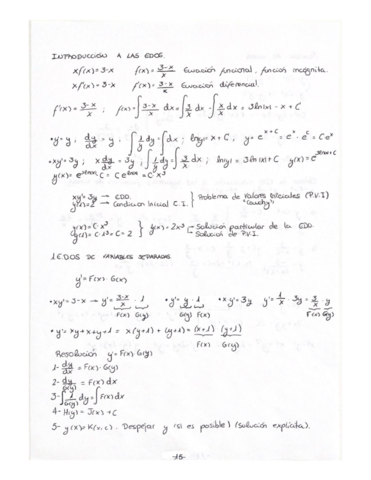 INTRODUCCIÓN A LAS EDOS.
xf(x)=3-x f(x)=3-x/x Ecuación funcional, función incógnita.
xf'(x)=3-x f'(x)=3-x/x Ecuación diferencial.
f'(x)=3-x/x ; f(x)=∫3-x/x dx=∫3/x dx-∫x/x dx=3ln|x|-x+C
•y'=y ; dy/dx=y ; ∫1/y dy=∫dx ; ln|y|=x+C ; y=e^(x+C)=e^x·e^C=Ce^x
•xy'=3y ; x dy/dx=3y ; ∫1/y dy=∫3/x dx ; ln|y|=3ln|x|+C y(x)=e^(3ln|x|+C)
xy'=3y → EDO.
y(1)=2 → Condición Inicial C.I. } Problema de Valores Iniciales (P.V.I) "Cauchy"
y(x)=C·x³
y(1)=C·1³=C=2 } y(x)=2x³ → Solución particular de la EDO.
Solución de P.V.I.
1. EDOS DE VARIABLES SEPARADAS
y'=F(x)·G(y)
•xy'=3-x → y'=3-x/x · 1 •y'=y·1 •xy'=3y y'=1/x·3y=3/x y
F(x) G(y) G(y) F(x) F(x) G(y)
•y'=xy+x+y+1=x(y+1)+(y+1)=(x+1)(y+1)
F(x) G(y)
Resolución y'=F(x)·G(y)
1- dy/dx=F(x)·G(y)
2- dy/G(y)=F(x)dx
3- ∫1/G(y) dy=∫F(x)dx
4- H(y)=J(x)+C
5- y(x)=K(x,c). Despejar y (si es posible) (solución explícita).
-15-